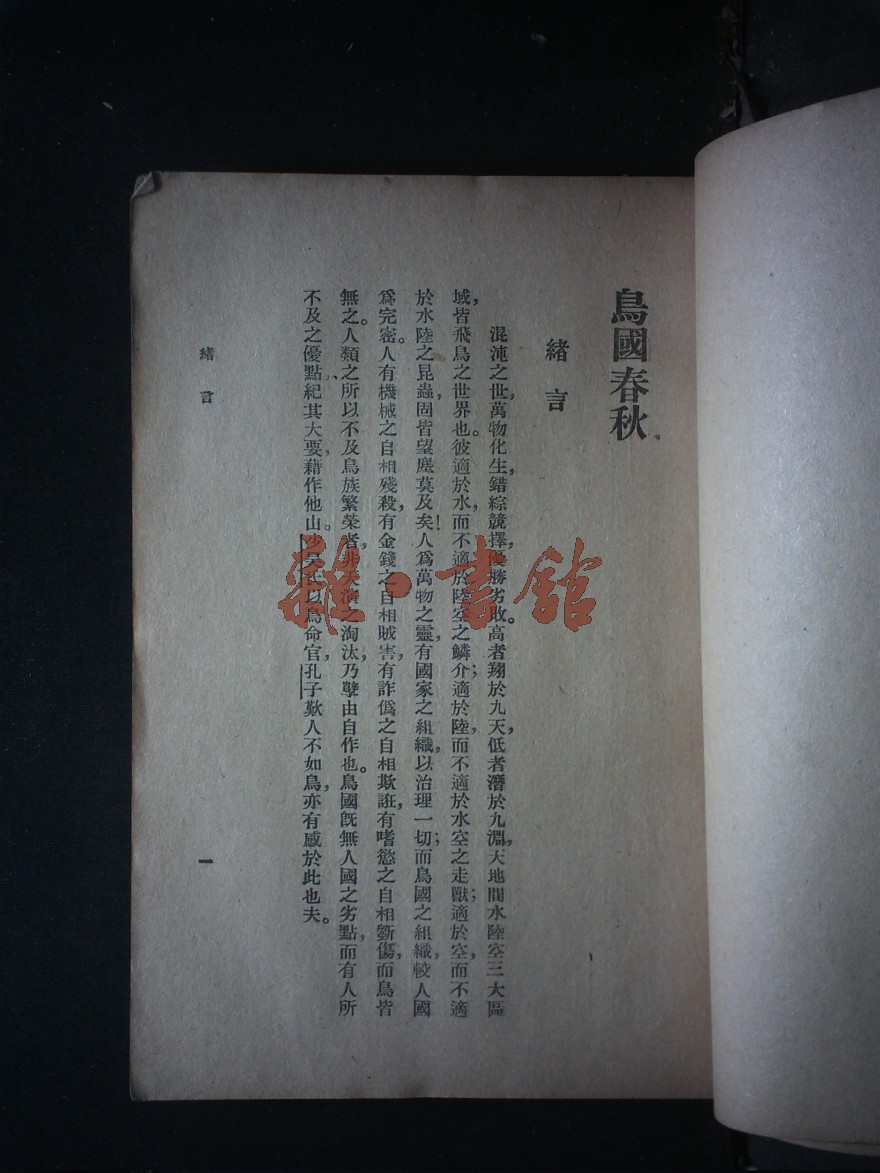 鳥國春秋
緒言
混沌之世，萬物化生，錯綜競擇，優勝劣敗。高者翔於九天，低者潛於九淵，天地間水陸空三大區
域，皆飛鳥之世界也。彼適於水，而不適於陸空之鱗介；適於陸，而不適於水空之走獸；適於空，而不適
於水陸之昆蟲，固皆望塵莫及矣！人為萬物之靈，有國家之組織，以治理一切；而鳥國之組織，較人國
為完密。人有機械之自相殘殺，有金錢之自相賊害，有詐偽之自相欺誑，有嗜慾之自相斲傷，而鳥皆
無之。人類之所以不及鳥族繁榮者，非天演之淘汰，乃孽由自作也。鳥國既無人國之劣點，而有人所
不及之優點，紀其大要，藉作他山。少昊氏以鳥命官，孔子歎人不如鳥，亦有感於此也夫。
緒言
一
雜·書館